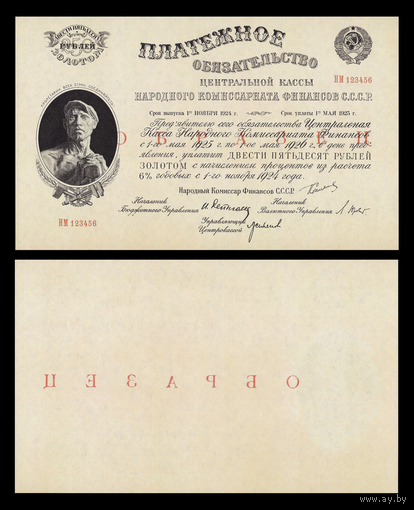 ДВЕСТИ ПЯТЬДЕСЯТ
250
РУБЛЕЙ
ЗОЛОТОМ
ПЛАТЕЖНОЕ
ОБЯЗАТЕЛЬСТВО
ЦЕНТРАЛЬНОЙ КАССЫ
НАРОДНОГО КОМИССАРИАТА ФИНАНСОВ С.С.С.Р.
НМ 123456
Срок выпуска 1го НОЯБРЯ 1924 г. Срок уплаты 1го МАЯ 1925 г.
Пред'явителю сего обязательства Центральная
Касса Народного Комиссариата Финансов
с 1-го мая 1925 г. по 1-ое мая 1926 г. в день пред'-
явления, уплатит ДВЕСТИ ПЯТЬДЕСЯТ РУБЛЕЙ
ЗОЛОТОМ с начислением процентов из расчета
6% годовых с 1-го ноября 1924 года.
ОБРАЗЕЦ
ПРОЛЕТАРИИ ВСЕХ СТРАН, СОЕДИНЯЙТЕСЬ!
НМ 123456
Народный Комиссар Финансов С.С.С.Р.
Начальник
Бюджетного Управления
Начальник
Валютного Управления
Управляющий
Центрокассой
ОБРАЗЕЦ
www.ay.by